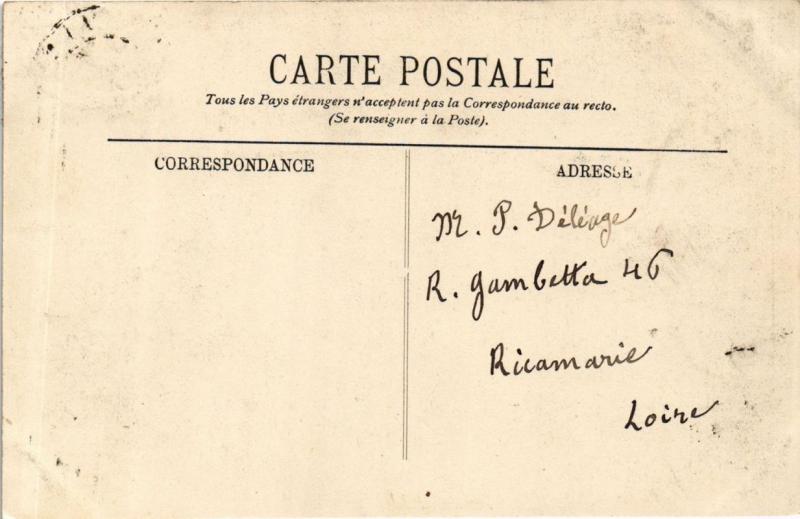 CARTE POSTALE
Tous les Pays étrangers n'acceptent pas la Correspondance au recto.
(Se renseigner à la Poste).
CORRESPONDANCE
ADRESSE
M. P. Déléage
R. Gambetta 46
Ricamarie
Loire